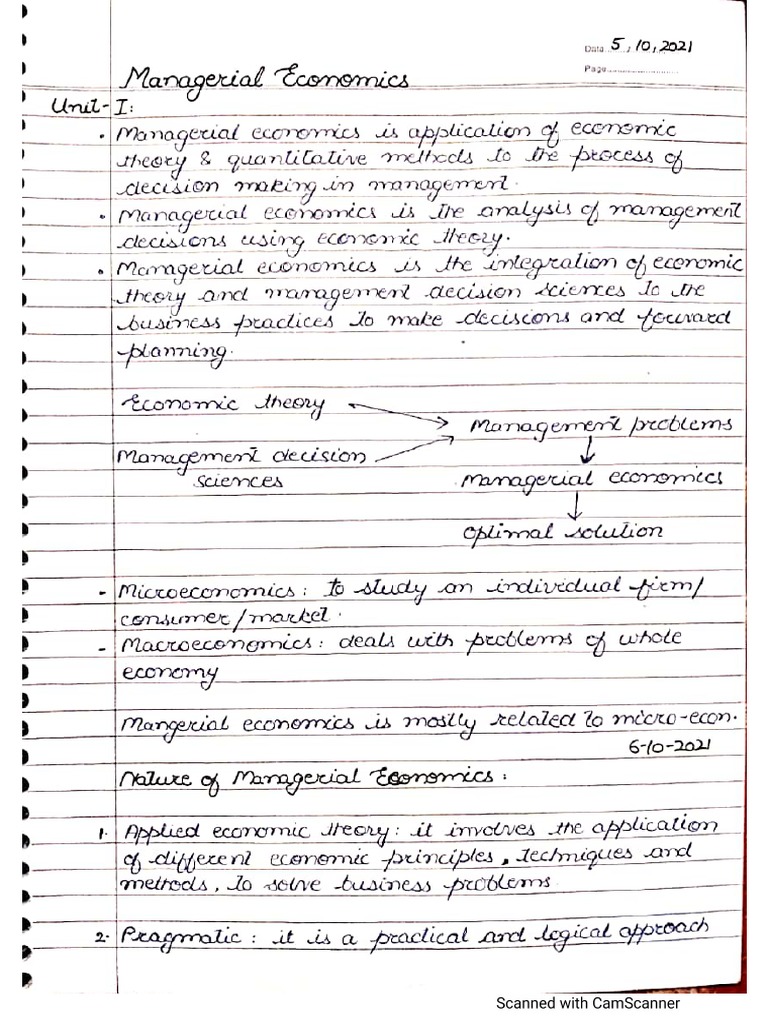 Date 5 / 10, 2021
Page
Managerial Economics
Unit-I:
• Managerial economics is application of economic
theory & quantitative methods to the process of
decision making in management.
• Managerial economics is the analysis of management
decisions using economic theory.
• Managerial economics is the integration of economic
theory and management decision sciences to the
business practices to make decisions and forward
planning.
Economic theory
Management problems
Management decision
sciences
Managerial economics
Optimal solution
- Microeconomics: to study an individual firm/
consumer/market.
- Macroeconomics: deals with problems of whole
economy
Mangerial economics is mostly related to micro-econ.
6-10-2021
Nature of Managerial Economics:
1. Applied economic theory: it involves the application
of different economic principles, techniques and
methods, to solve business problems.
2. Pragmatic: it is a practical and logical approach
Scanned with CamScanner